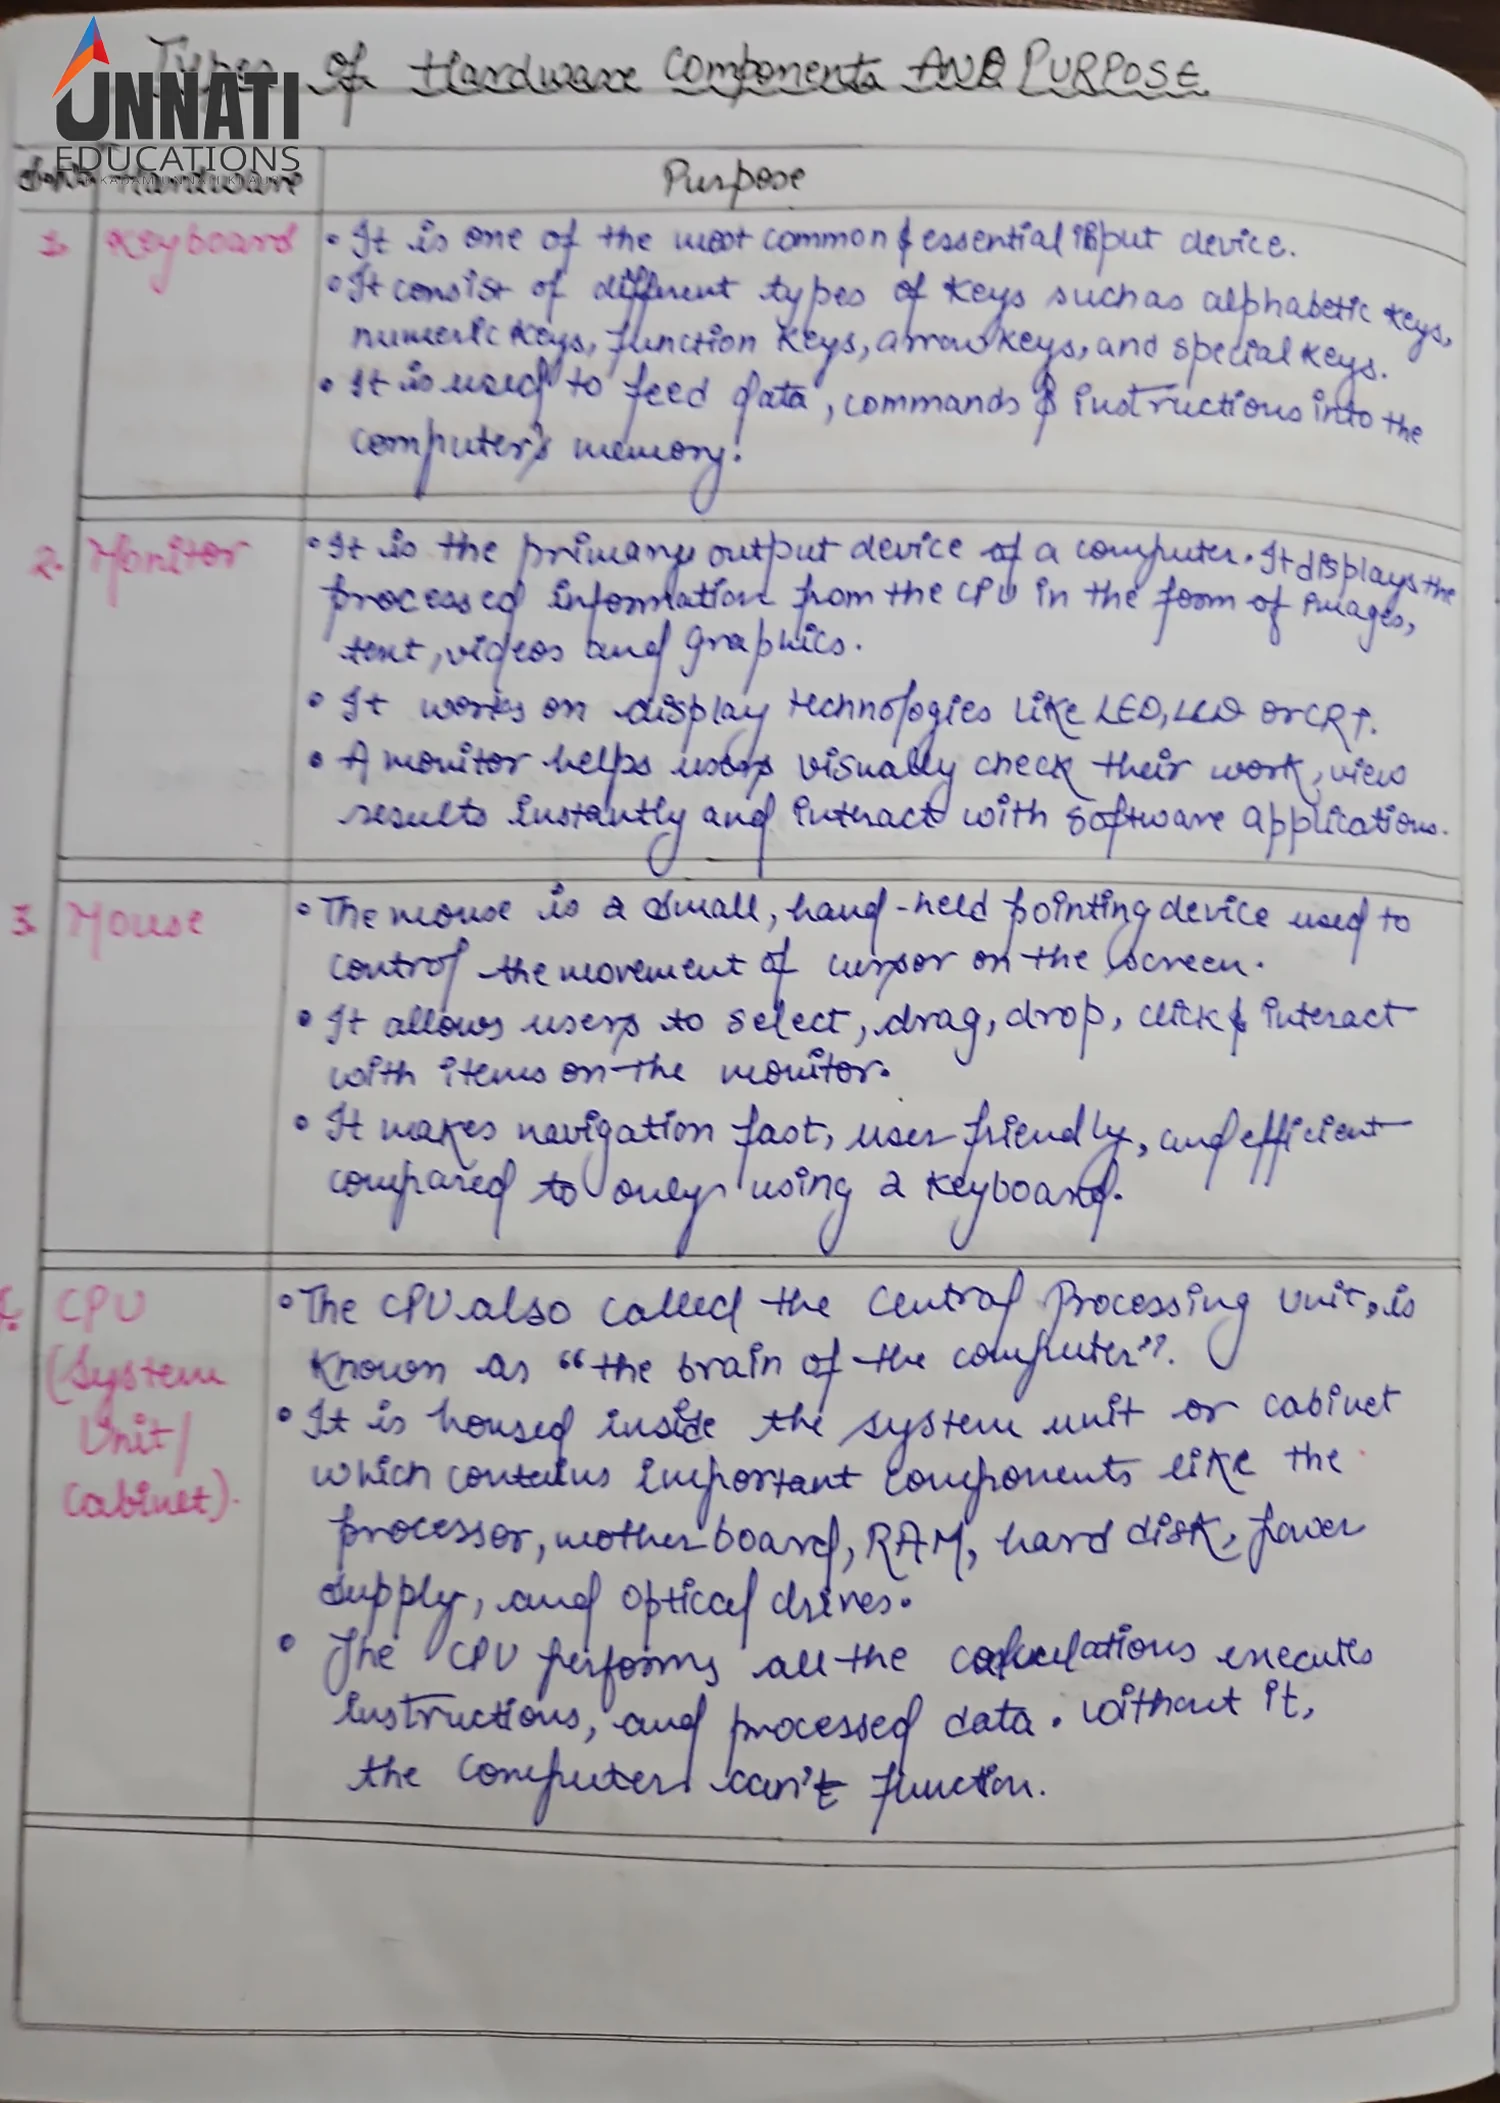 Types of Hardware Components AND PURPOSE
UNNATI
EDUCATIONS
Hardware
Purpose
1. Keyboard
• It is one of the most common & essential input device.
• It consist of different types of keys such as alphabetic keys,
numeric keys, function keys, arrow keys, and special keys.
• It is used to feed data, commands & instructions into the
computer's memory.
2. Monitor
• It is the primary output device of a computer. It displays the
processed information from the CPU in the form of images,
text, videos and graphics.
• It works on display technologies like LED, LCD or CRT.
• A monitor helps users visually check their work, view
results instantly and interact with software applications.
3. Mouse
• The mouse is a small, hand-held pointing device used to
control the movement of cursor on the screen.
• It allows users to select, drag, drop, click & interact
with items on the monitor.
• It makes navigation fast, user friendly, and efficient
compared to only using a keyboard.
CPU
(System
Unit/
Cabinet).
• The CPU also called the Central Processing Unit, is
known as "the brain of the computer".
• It is housed inside the system unit or cabinet
which contains important components like the
processor, mother board, RAM, hard disk, power
supply, and optical drives.
• The CPU performs all the calculations executes
instructions, and processed data. Without it,
the computer can't function.